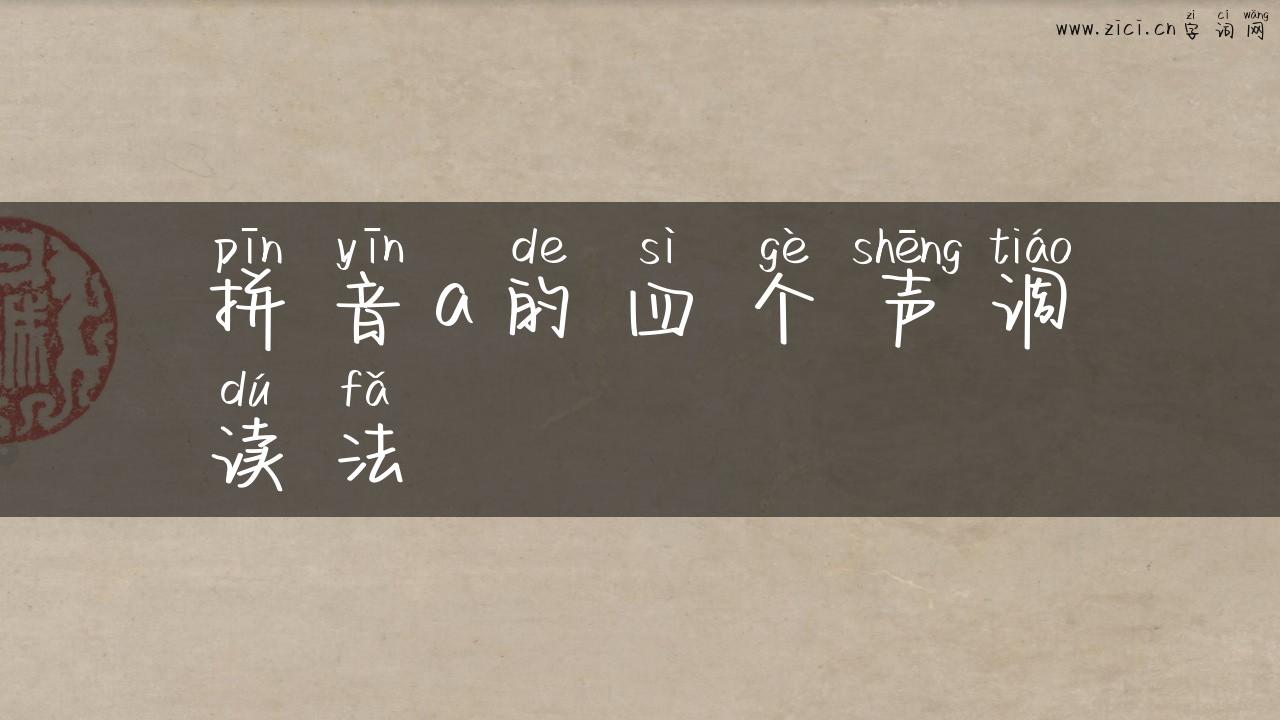 zì cí wǎng
www.zici.cn 字词网
pīn yīn de sì gè shēng tiáo
拼音a的四个声调
dú fǎ
读法